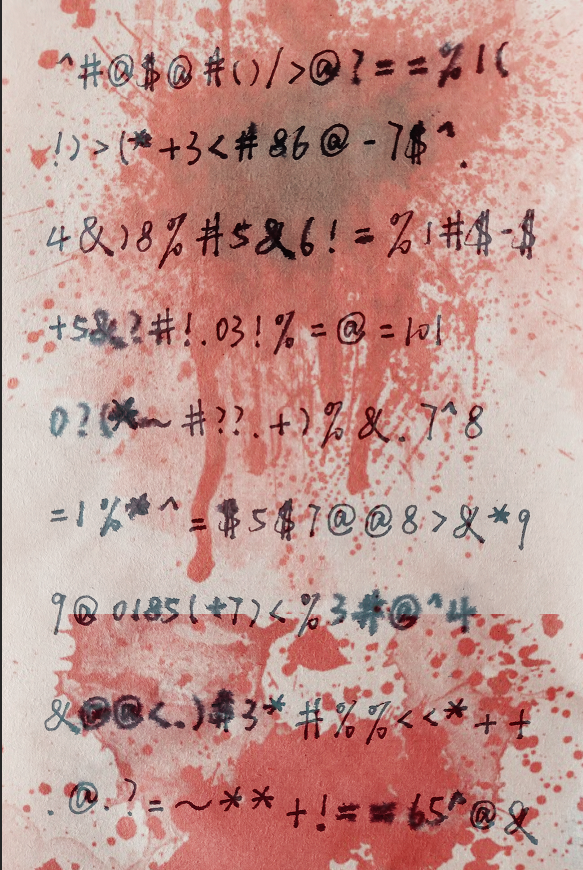 ^#@$@#()/>@?==%1(
!)>(*+3<#86@-7$^.
4&)8%#5&6!=%1#$-$
+5&?#!.03!%=@=101
0?(*~#??.+)%&.7^8
=1%*^=$5$7@@8>&*9
9@0185(+7)<%3#@^4
&@@<.)$3*#%%<<*++
.@.?=~**+!==65^@&